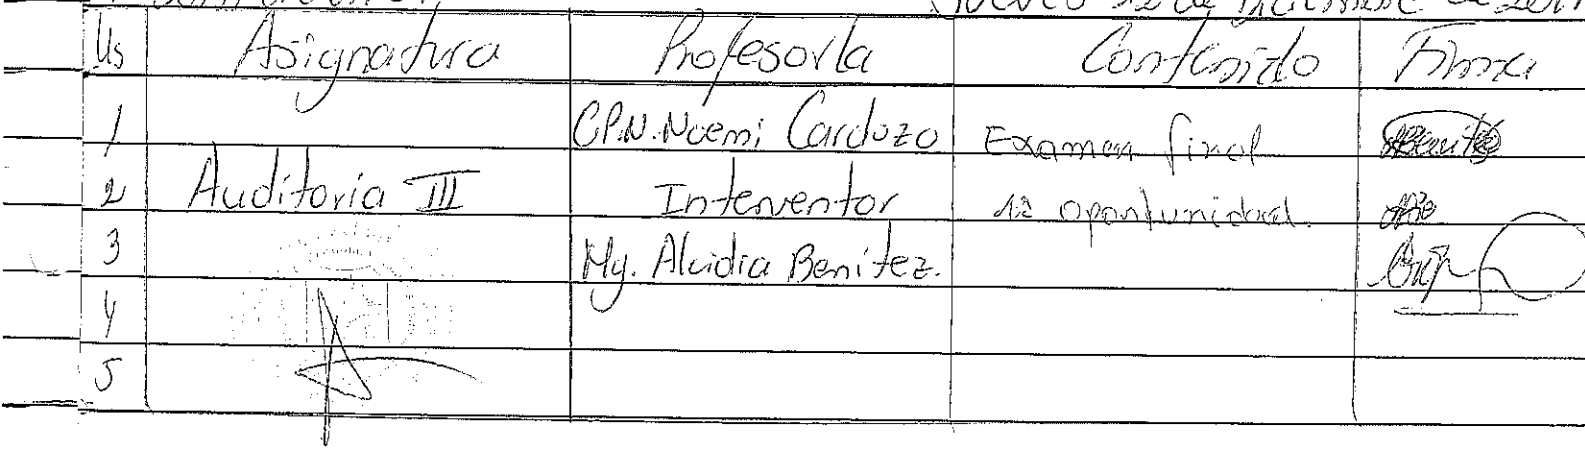 Us Asignatura Profesor/a Contenido Firma
1 C.P.N. Noemi Cardozo Examen final
2 Auditoria III Interventor 1ª oportunidad.
3 Mg. Alcidia Benitez.
4
5